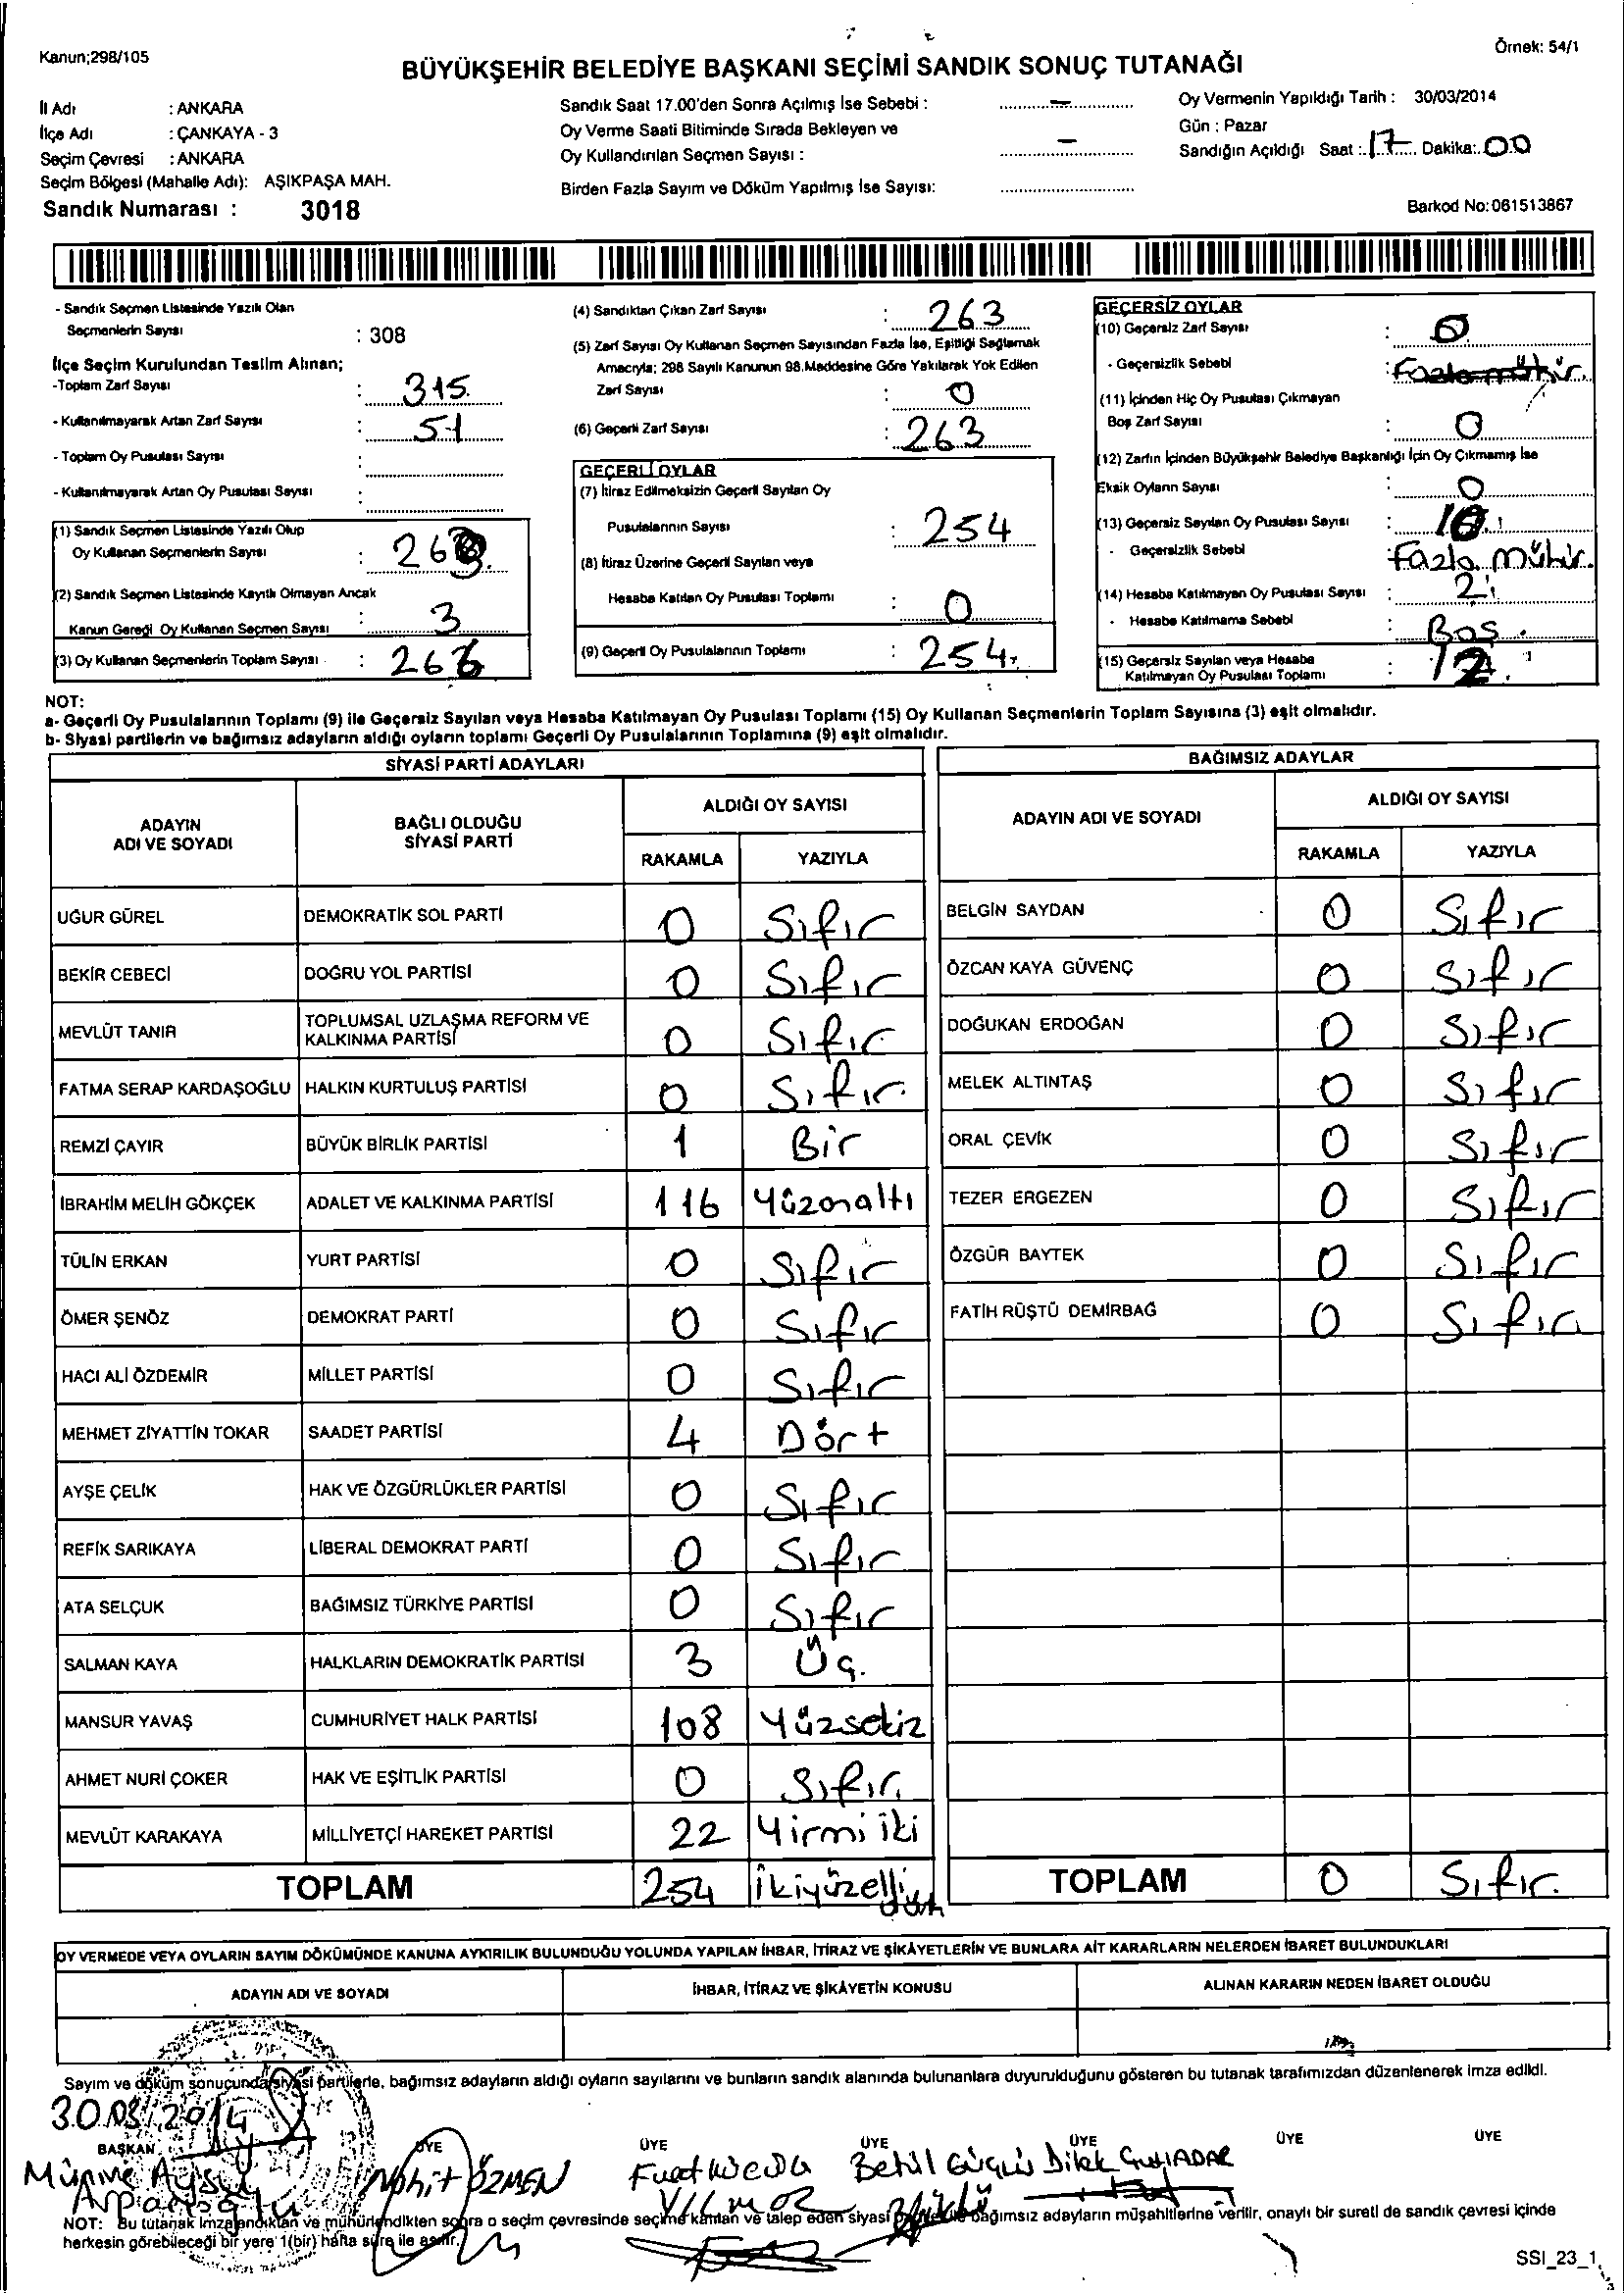 Kanun;298/105
Örnek: 54/1
BÜYÜKŞEHİR BELEDİYE BAŞKANI SEÇİMİ SANDIK SONUÇ TUTANAĞI
İl Adı : ANKARA
İlçe Adı : ÇANKAYA - 3
Seçim Çevresi : ANKARA
Seçim Bölgesi (Mahalle Adı): AŞIKPAŞA MAH.
Sandık Numarası : 3018
Sandık Saat 17.00'den Sonra Açılmış İse Sebebi : –
Oy Verme Saati Bitiminde Sırada Bekleyen ve
Oy Kullandırılan Seçmen Sayısı : –
Birden Fazla Sayım ve Döküm Yapılmış İse Sayısı:
Oy Vermenin Yapıldığı Tarih : 30/03/2014
Gün : Pazar
Sandığın Açıldığı Saat : 17 Dakika: 00
Barkod No: 061513867
- Sandık Seçmen Listesinde Yazılı Olan
Seçmenlerin Sayısı : 308
İlçe Seçim Kurulundan Teslim Alınan;
-Toplam Zarf Sayısı : 315
- Kullanılmayarak Artan Zarf Sayısı : 51
- Toplam Oy Pusulası Sayısı :
- Kullanılmayarak Artan Oy Pusulası Sayısı :
(1) Sandık Seçmen Listesinde Yazılı Olup
Oy Kullanan Seçmenlerin Sayısı : 263.
(2) Sandık Seçmen Listesinde Kayıtlı Olmayan Ancak
Kanun Gereği Oy Kullanan Seçmen Sayısı : 3
(3) Oy Kullanan Seçmenlerin Toplam Sayısı : 266
(4) Sandıktan Çıkan Zarf Sayısı : 263
(5) Zarf Sayısı Oy Kullanan Seçmen Sayısından Fazla İse, Eşitliği Sağlamak
Amacıyla; 298 Sayılı Kanunun 98.Maddesine Göre Yakılarak Yok Edilen
Zarf Sayısı : 0
(6) Geçerli Zarf Sayısı : 263
GEÇERLİ OYLAR
(7) İtiraz Edilmeksizin Geçerli Sayılan Oy
Pusulalarının Sayısı : 254
(8) İtiraz Üzerine Geçerli Sayılan veya
Hesaba Katılan Oy Pusulası Toplamı : 0
(9) Geçerli Oy Pusulalarının Toplamı : 254
GEÇERSİZ OYLAR
(10) Geçersiz Zarf Sayısı : 0
- Geçersizlik Sebebi : Fazla mühür.
(11) İçinden Hiç Oy Pusulası Çıkmayan
Boş Zarf Sayısı : 0
(12) Zarfın İçinden Büyükşehir Belediye Başkanlığı İçin Oy Çıkmamış İse
Eksik Oyların Sayısı : 0
(13) Geçersiz Sayılan Oy Pusulası Sayısı : 10
- Geçersizlik Sebebi Fazla mühür.
(14) Hesaba Katılmayan Oy Pusulası Sayısı : 2
- Hesaba Katılmama Sebebi : Boş.
(15) Geçersiz Sayılan veya Hesaba
Katılmayan Oy Pusulası Toplamı : 12.
NOT:
a- Geçerli Oy Pusulalarının Toplamı (9) ile Geçersiz Sayılan veya Hesaba Katılmayan Oy Pusulası Toplamı (15) Oy Kullanan Seçmenlerin Toplam Sayısına (3) eşit olmalıdır.
b- Siyasi partilerin ve bağımsız adayların aldığı oyların toplamı Geçerli Oy Pusulalarının Toplamına (9) eşit olmalıdır.
SİYASİ PARTİ ADAYLARI
ADAYIN ADI VE SOYADI BAĞLI OLDUĞU SİYASİ PARTİ ALDIĞI OY SAYISI
RAKAMLA YAZIYLA
UĞUR GÜREL DEMOKRATİK SOL PARTİ 0 Sıfır
BEKİR CEBECİ DOĞRU YOL PARTİSİ 0 Sıfır
MEVLÜT TANIR TOPLUMSAL UZLAŞMA REFORM VE KALKINMA PARTİSİ 0 Sıfır
FATMA SERAP KARDAŞOĞLU HALKIN KURTULUŞ PARTİSİ 0 Sıfır.
REMZİ ÇAYIR BÜYÜK BİRLİK PARTİSİ 1 Bir
İBRAHİM MELİH GÖKÇEK ADALET VE KALKINMA PARTİSİ 116 Yüzonaltı
TÜLİN ERKAN YURT PARTİSİ 0 Sıfır
ÖMER ŞENÖZ DEMOKRAT PARTİ 0 Sıfır
HACI ALİ ÖZDEMİR MİLLET PARTİSİ 0 Sıfır
MEHMET ZİYATTİN TOKAR SAADET PARTİSİ 4 Dört
AYŞE ÇELİK HAK VE ÖZGÜRLÜKLER PARTİSİ 0 Sıfır
REFİK SARIKAYA LİBERAL DEMOKRAT PARTİ 0 Sıfır
ATA SELÇUK BAĞIMSIZ TÜRKİYE PARTİSİ 0 Sıfır
SALMAN KAYA HALKLARIN DEMOKRATİK PARTİSİ 3 Üç.
MANSUR YAVAŞ CUMHURİYET HALK PARTİSİ 108 Yüzsekiz
AHMET NURİ ÇOKER HAK VE EŞİTLİK PARTİSİ 0 Sıfır.
MEVLÜT KARAKAYA MİLLİYETÇİ HAREKET PARTİSİ 22 Yirmi iki
TOPLAM 254 İkiyüzelli dört
BAĞIMSIZ ADAYLAR
ADAYIN ADI VE SOYADI ALDIĞI OY SAYISI
RAKAMLA YAZIYLA
BELGİN SAYDAN 0 Sıfır
ÖZCAN KAYA GÜVENÇ 0 Sıfır
DOĞUKAN ERDOĞAN 0 Sıfır
MELEK ALTINTAŞ 0 Sıfır
ORAL ÇEVİK 0 Sıfır
TEZER ERGEZEN 0 Sıfır
ÖZGÜR BAYTEK 0 Sıfır
FATİH RÜŞTÜ DEMİRBAĞ 0 Sıfır
TOPLAM 0 Sıfır.
OY VERMEDE VEYA OYLARIN SAYIM DÖKÜMÜNDE KANUNA AYKIRILIK BULUNDUĞU YOLUNDA YAPILAN İHBAR, İTİRAZ VE ŞİKÂYETLERİN VE BUNLARA AİT KARARLARIN NELERDEN İBARET BULUNDUKLARI
ADAYIN ADI VE SOYADI İHBAR, İTİRAZ VE ŞİKÂYETİN KONUSU ALINAN KARARIN NEDEN İBARET OLDUĞU
Sayım ve döküm sonucunda siyasi partilerle, bağımsız adayların aldığı oyların sayılarını ve bunların sandık alanında bulunanlara duyurulduğunu gösteren bu tutanak tarafımızdan düzenlenerek imza edildi.
30.03.2014
BAŞKAN ÜYE ÜYE ÜYE ÜYE ÜYE ÜYE
Nahit ÖZMEN Fuat Betül Dilek
YILMAZ
NOT: Bu tutanak imzalandıktan ve mühürlendikten sonra o seçim çevresinde seçime katılan ve talep eden siyasi parti ile bağımsız adayların müşahitlerine verilir, onaylı bir sureti de sandık çevresi içinde
herkesin görebileceği bir yere 1(bir) hafta süre ile asılır.
SSI_23_1